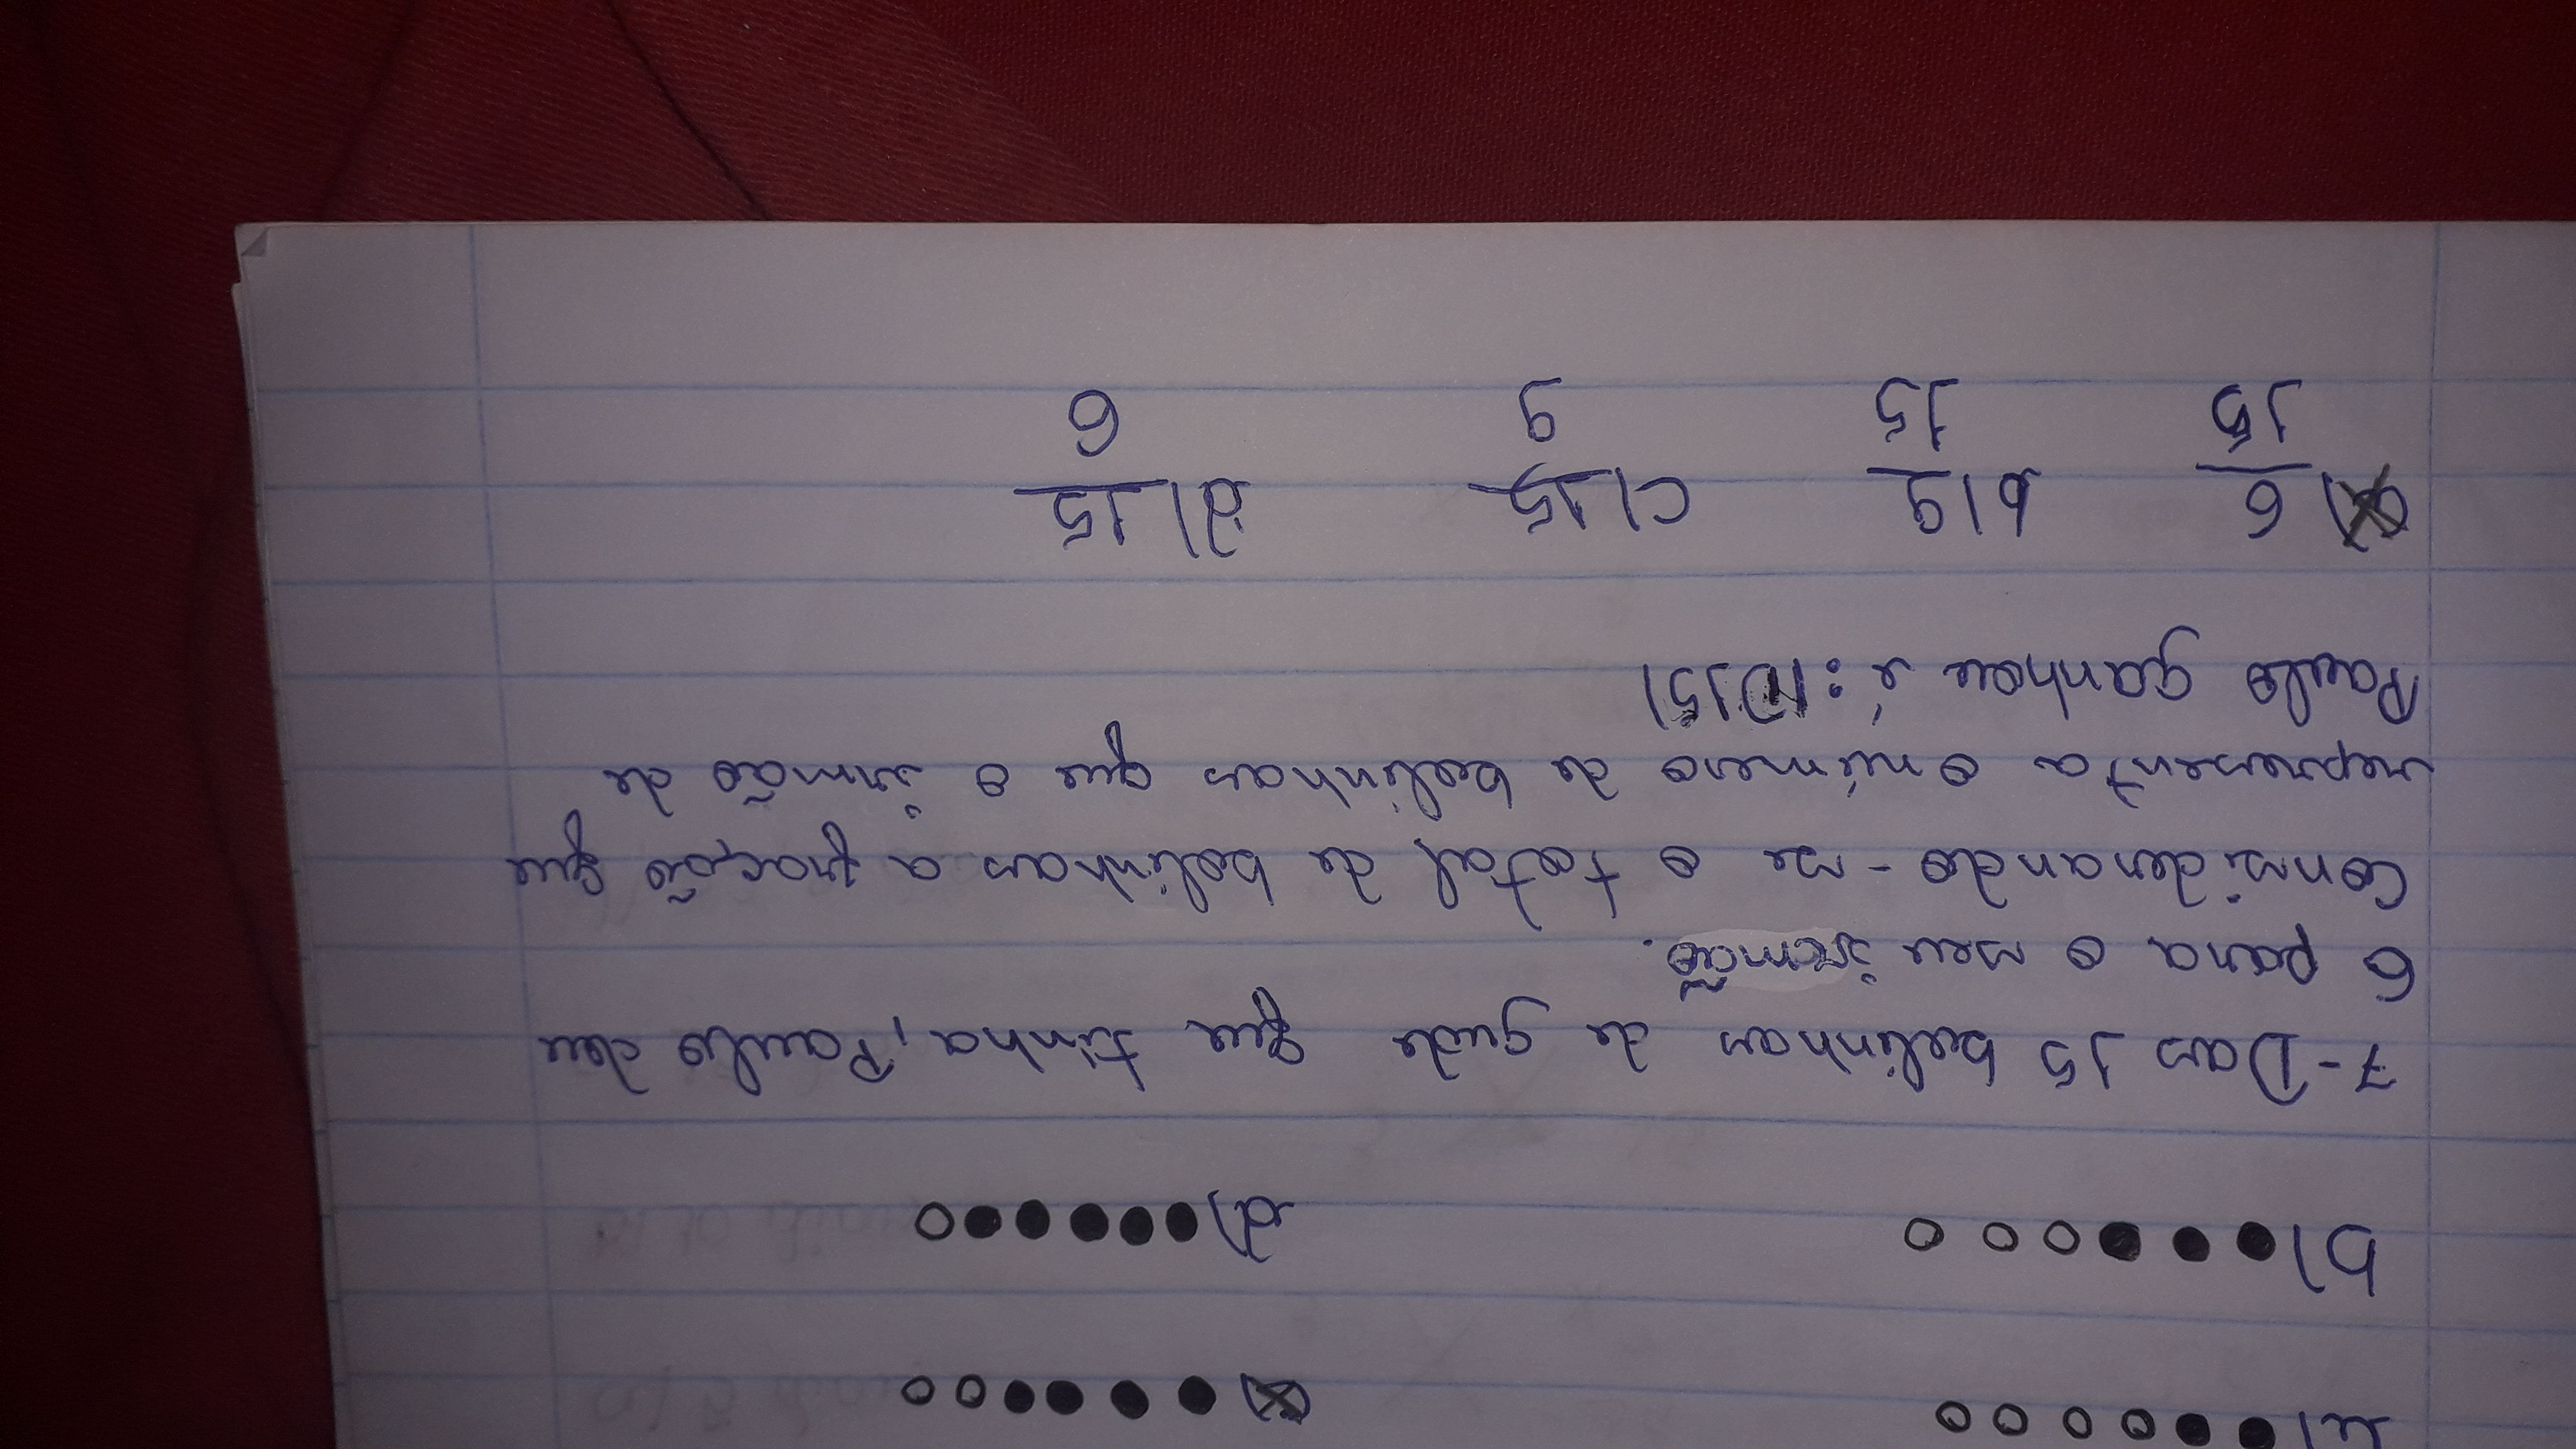 a) c)
b) d)
7- Das 15 bolinhas de gude que tinha, Paulo deu
6 para o seu irmão.
Considerando-se o total de bolinhas a fração que
representa o número de bolinhas que o irmão de
Paulo ganhou é: (D15)
a) 6/15 b) 9/15 c) 15/9 d) 15/6